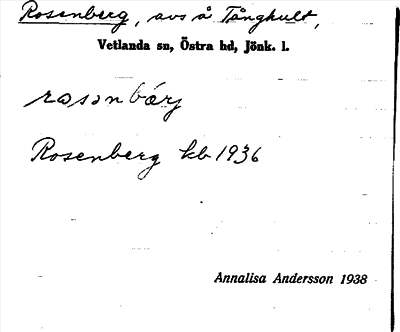 Rosenberg, avs å Tånghult,
Vetlanda sn, Östra hd, Jönk. l.
Rosenberg kb 1936
Annalisa Andersson 1938